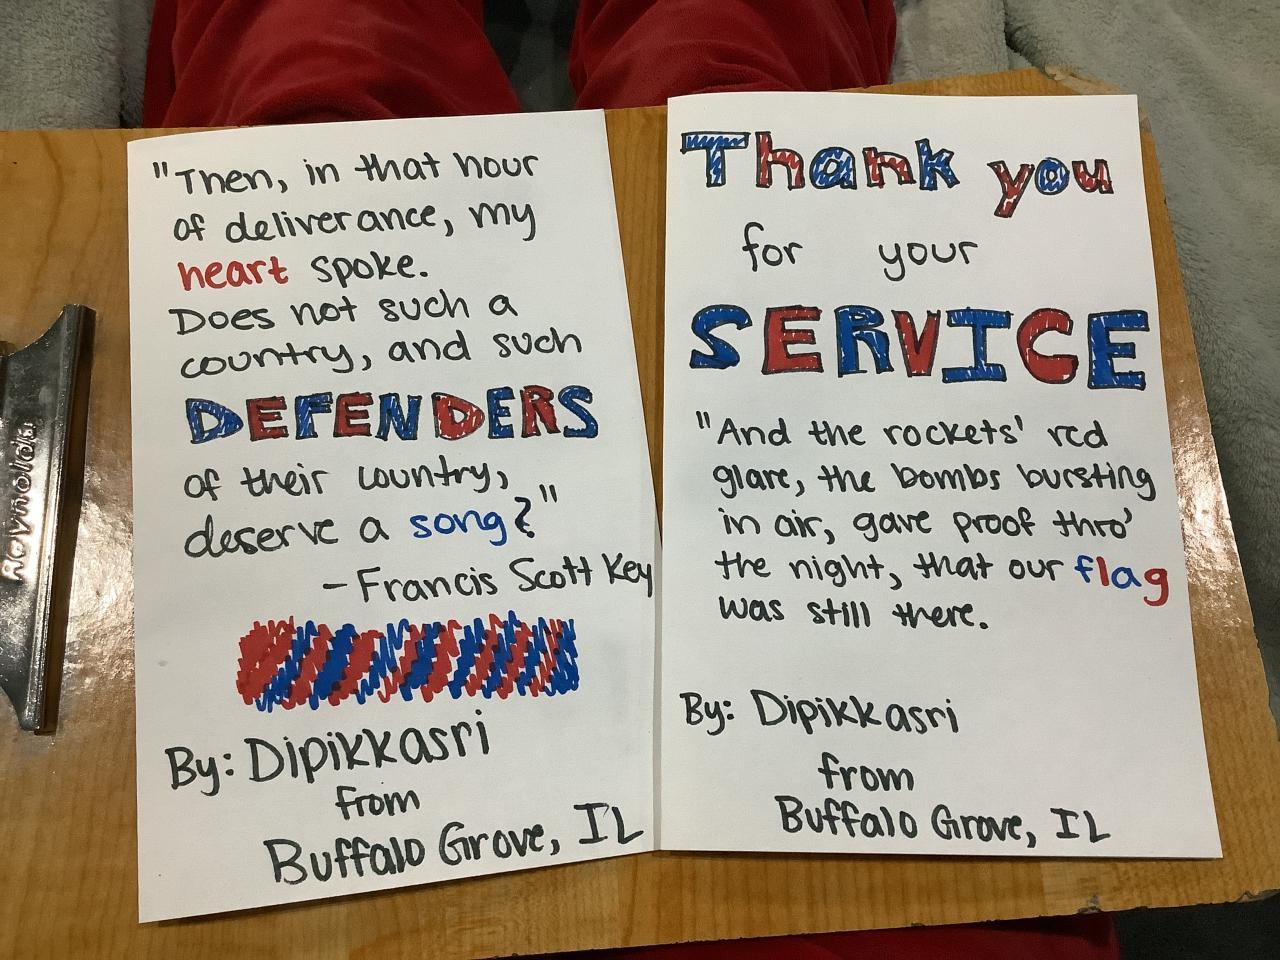 "Then, in that hour
of deliverance, my
heart spoke.
Does not such a
country, and such
DEFENDERS
of their country,
deserve a song?"
- Francis Scott Key
By: Dipikkasri
from
Buffalo Grove, IL
Thank you
for your
SERVICE
"And the rockets' red
glare, the bombs bursting
in air, gave proof thro'
the night, that our flag
was still there.
By: Dipikkasri
from
Buffalo Grove, IL
Reynolds